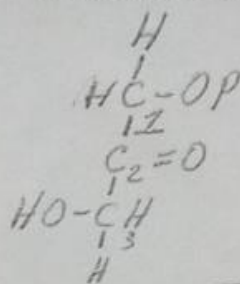 H
HC-OP
1
C2=O
HO-CH
3
H